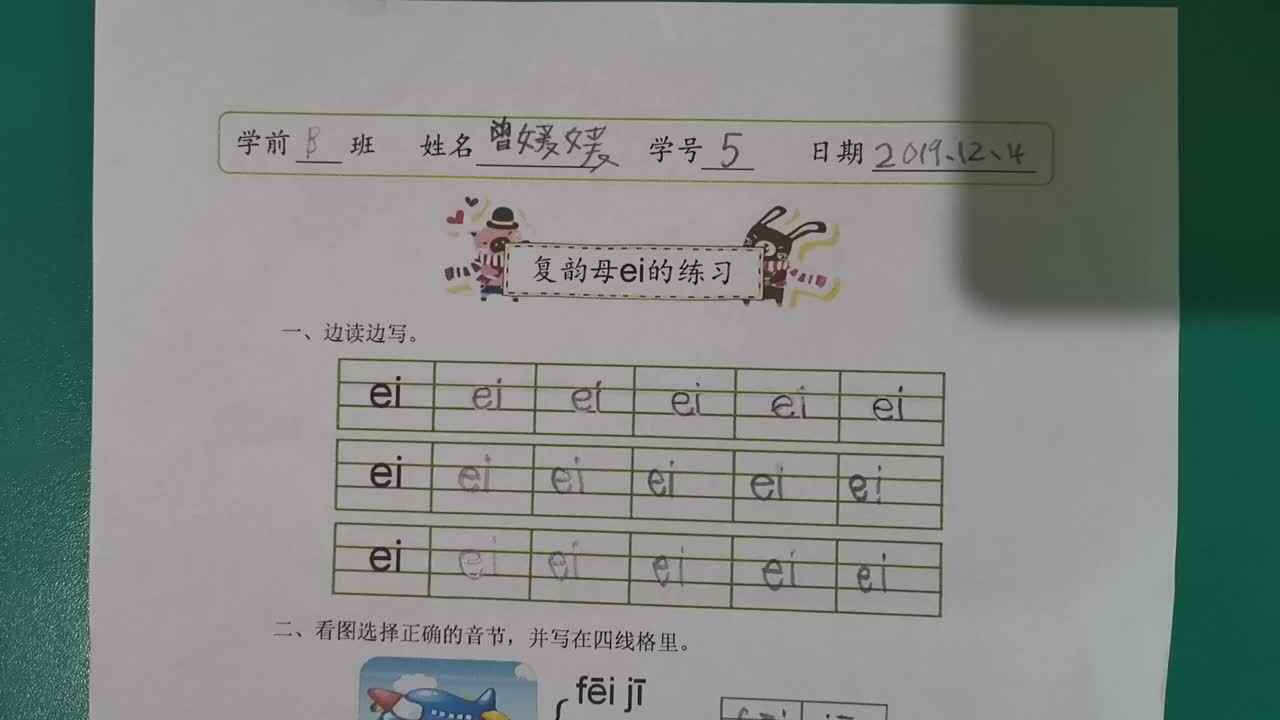 学前 B 班 姓名 曾媛媛 学号 5 日期 2019.12.4
复韵母ei的练习
一、边读边写。
ei ei ei ei ei ei
ei ei ei ei ei ei
ei ei ei ei ei ei
二、看图选择正确的音节，并写在四线格里。
fēi jī